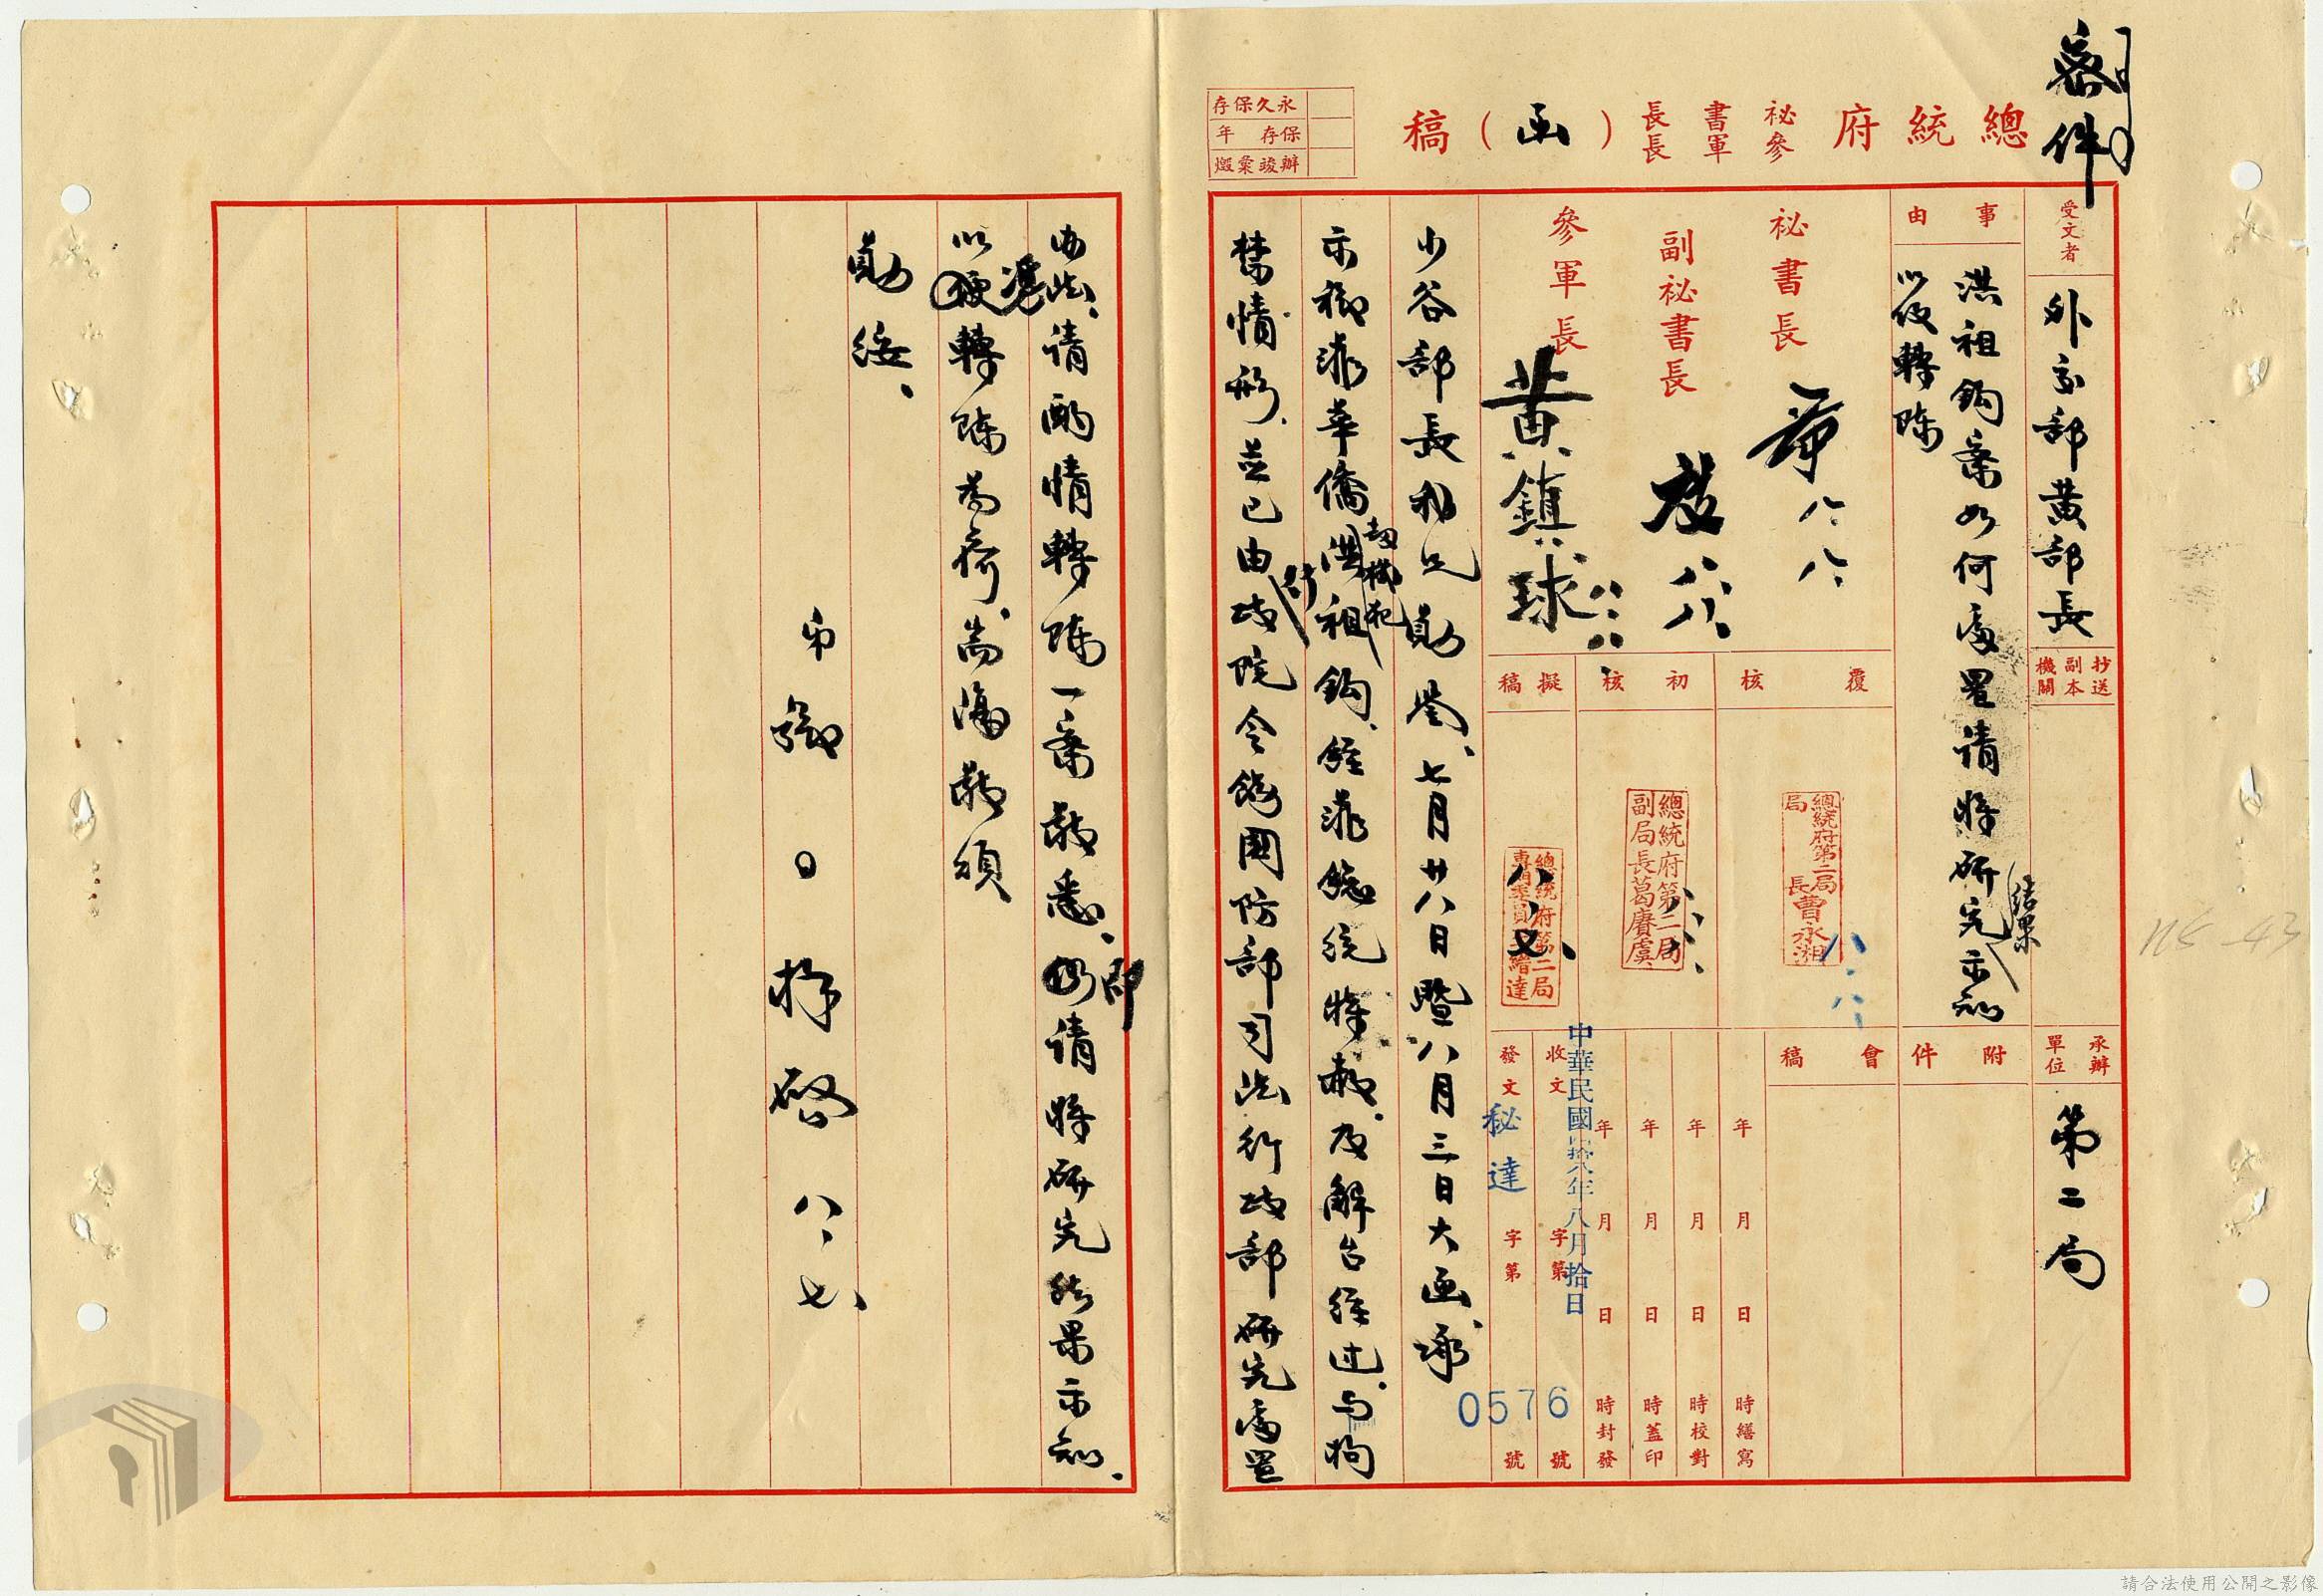 密件
總統府秘書長參軍長(函)稿
永久保存
保存 年
辦竣彙燬
受文者
外交部黃部長
抄送副本機關
承辦單位
第二局
事由
洪祖鈎案如何處置請將研究結果示知
以便轉陳
附件
秘書長
八、八、
副秘書長
八、八、
參軍長
黃鎮球
八、八、
覆核
初核
擬稿
總統府第二局局長曹永湘
八、八、
總統府第二局副局長葛賡虞
八、八、
總統府第二局專門委員
八、七、
會稿
年 月 日 時繕寫
年 月 日 時校對
年 月 日 時蓋印
年 月 日 時封發
中華民國四拾八年八月拾日
收文 字第 號
發文 秘達 字第 0576 號
少谷部長我兄勛鑒、七月廿八日暨八月三日大函、承
示柳濂華僑劫機犯洪祖鈎、經濂總統特赦、及解台經過、與拘
禁情形、並已由行政院令飭國防部司法行政部研究處置
辦法、請酌情轉陳一案敬悉、即請將研究結果示知、
以憑轉陳為荷、耑復敬頌
勛綏、
弟 鄉〇撐啓 八、七、
NS-43
請合法使用公開之影像